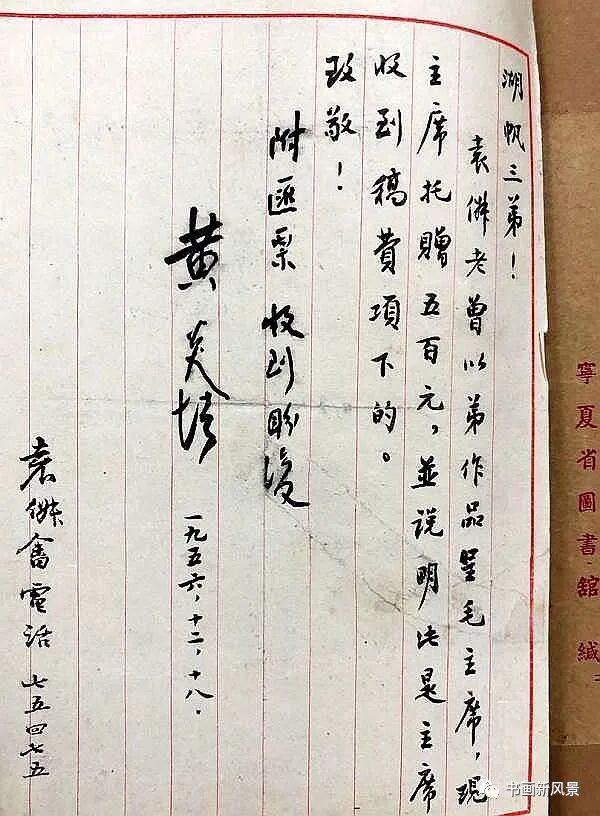 湖帆三弟！
袁佾老曾以弟作品呈毛主席，現
主席托贈五百元，並说明此是主席
收到稿費項下的。
致敬！
附匯票 收到盼復
黄炎培
一九五六，十二，十八．
袁佾畬電话 七五四七五
寧夏省圖書館緘
书画新风景